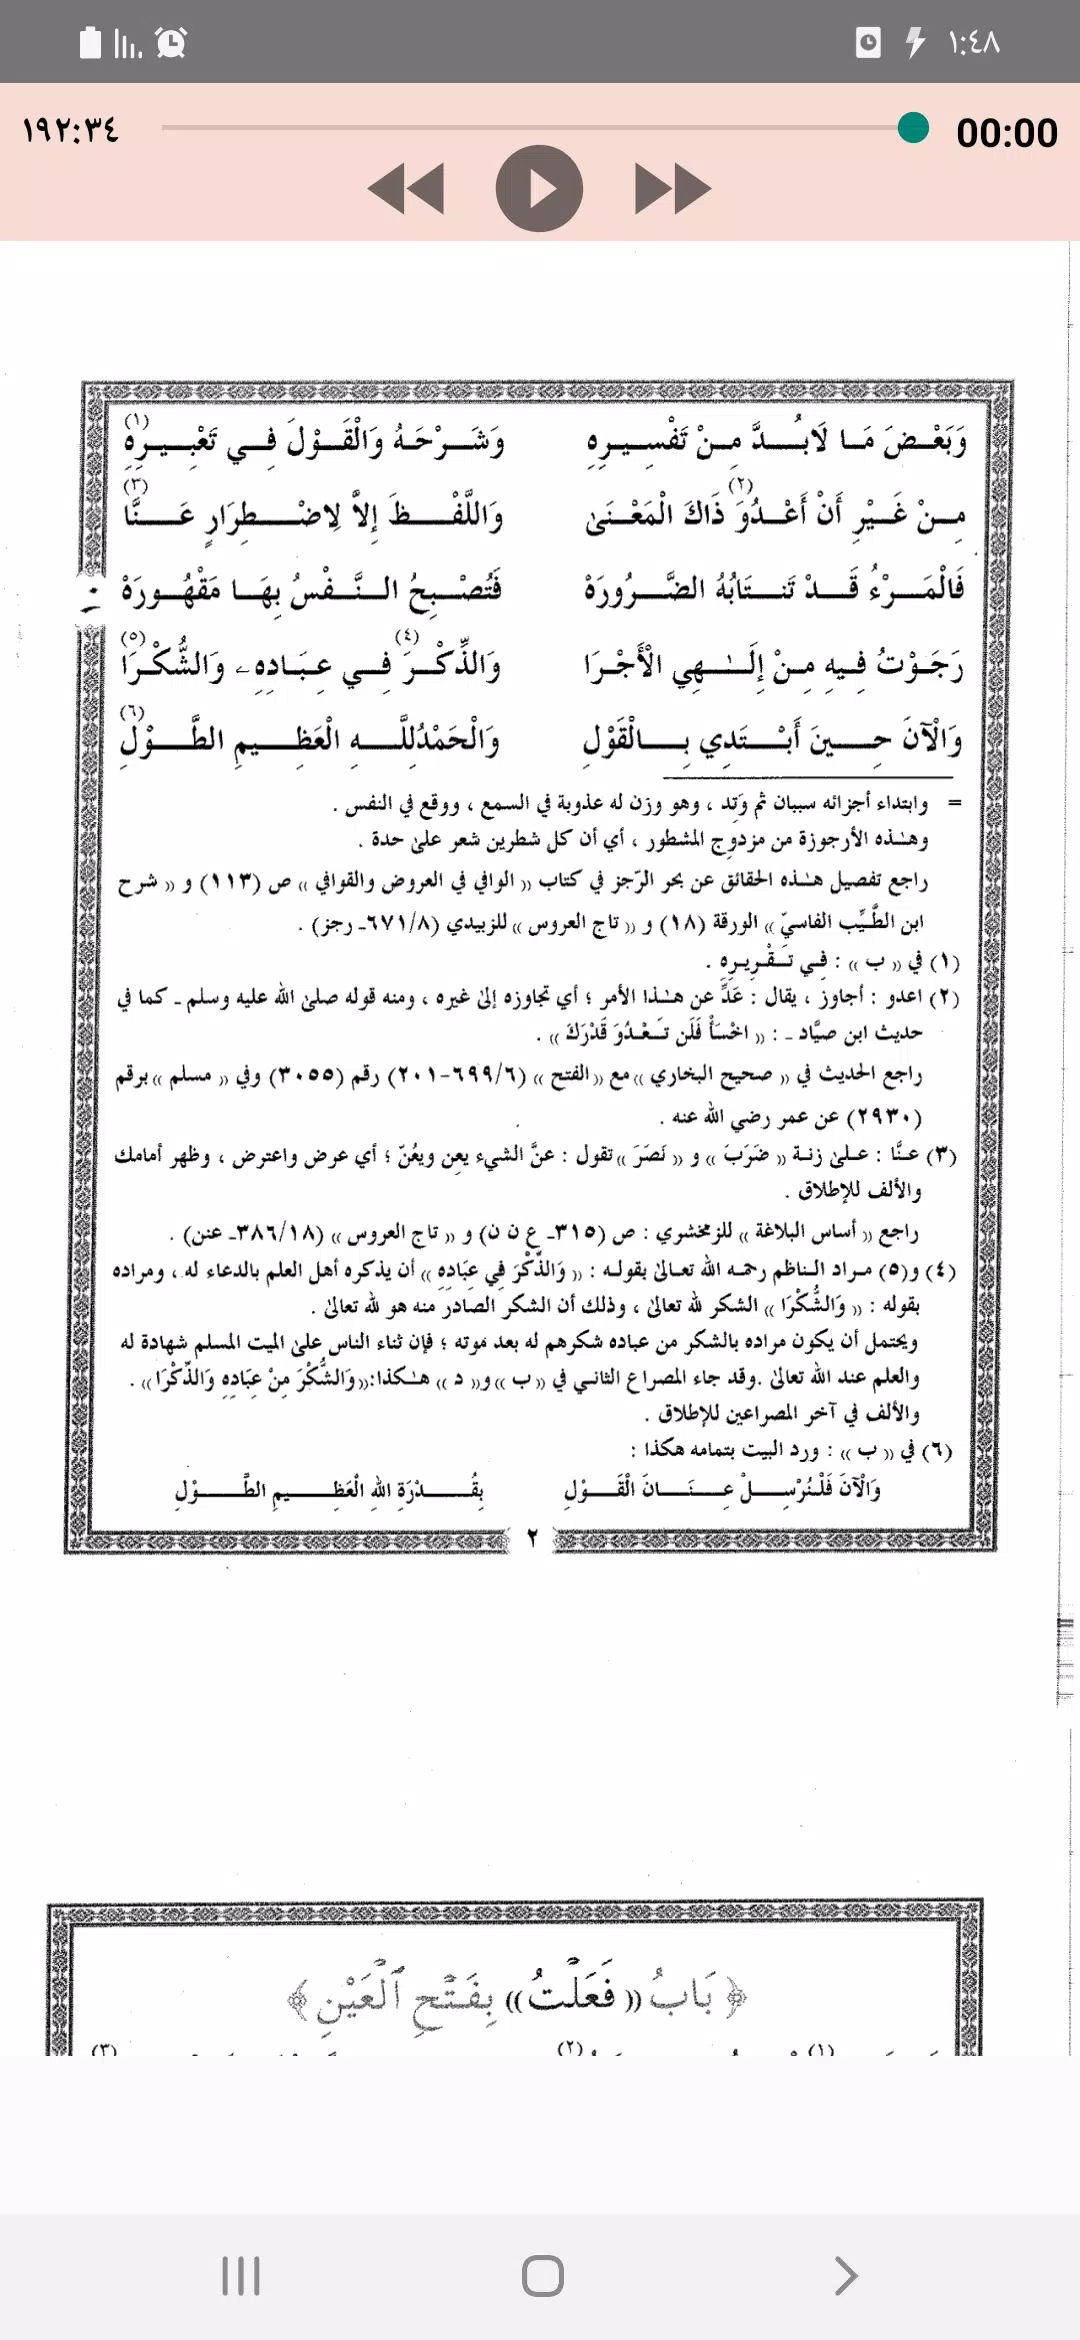 ١:٤٨
١٩٢:٣٤ 00:00
وَبَعْضَ مَا لَابُدَّ مِنْ تَفْسِيرِهِ وَشَرْحَهُ وَالْقَوْلَ فِي تَعْبِيرِهِ (١)
مِنْ غَيْرِ أَنْ أَعْدُوَ (٢) ذَاكَ الْمَعْنَىٰ وَاللَّفْظَ إِلَّا لِاضْطِرَارٍ عَنَّا (٣)
فَالْمَرْءُ قَدْ تَنتَابُهُ الضَّرُورَهْ فَتُصْبِحُ النَّفْسُ بِهَا مَقْهُورَهْ
رَجَوْتُ فِيهِ مِنْ إِلَـٰهِي الْأَجْرَا وَالذِّكْرَ (٤) فِي عِبَادِهِ وَالشُّكْرَا (٥)
وَالْآنَ حِينَ أَبْتَدِي بِالْقَوْلِ وَالْحَمْدُ لِلَّهِ الْعَظِيمِ الطَّوْلِ (٦)
= وابتداء أجزائه سببان ثم وَتِد ، وهو وزن له عذوبة في السمع ، ووقع في النفس .
وهـٰذه الأرجوزة من مزدوج المشطور ، أي أن كل شطرين شعر علىٰ حدة .
راجع تفصيل هـٰذه الحقائق عن بحر الرّجز في كتاب (( الوافي في العروض والقوافي )) ص (١١٣) و (( شرح
ابن الطَّيِّب الفاسيّ )) الورقة (١٨) و (( تاج العروس )) للزبيدي (٦٧١/٨ـ رجز) .
(١) في (( ب )) : فِي تَقْرِيرِهِ .
(٢) اعدو : أجاوز ، يقال : عَدِّ عن هـٰذا الأمر ؛ أي تجاوزه إلىٰ غيره ، ومنه قوله صلىٰ الله عليه وسلم ـ كما في
حديث ابن صيَّاد ـ : (( اخْسَأْ فَلَن تَعْدُوَ قَدْرَكَ )) .
راجع الحديث في (( صحيح البخاري )) مع (( الفتح )) (٦٩٩/٦-٢٠١) رقم (٣٠٥٥) وفي (( مسلم )) برقم
(٢٩٣٠) عن عمر رضي الله عنه .
(٣) عنَّا : علىٰ زنة (( ضَرَبَ )) و (( نَصَرَ )) تقول : عنَّ الشيء يعِن ويعُنّ ؛ أي عرض واعترض ، وظهر أمامك
والألف للإطلاق .
راجع (( أساس البلاغة )) للزمخشري : ص (٣١٥ـ ع ن ن) و (( تاج العروس )) (٣٨٦/١٨ـ عنن) .
(٤) و(٥) مراد الناظم رحمه الله تعالىٰ بقوله : (( وَالذِّكْرَ فِي عِبَادِهِ )) أن يذكره أهل العلم بالدعاء له ، ومراده
بقوله : (( وَالشُّكْرَا )) الشكر لله تعالىٰ ، وذلك أن الشكر الصادر منه هو لله تعالىٰ .
ويحتمل أن يكون مراده بالشكر من عباده شكرهم له بعد موته ؛ فإن ثناء الناس علىٰ الميت المسلم شهادة له
والعلم عند الله تعالىٰ . وقد جاء المصراع الثاني في (( ب )) و(( د )) هـٰكذا: (( وَالشُّكْرَ مِنْ عِبَادِهِ وَالذِّكْرَا )) .
والألف في آخر المصراعين للإطلاق .
(٦) في (( ب )) : ورد البيت بتمامه هكذا :
وَالْآنَ فَلْنُرْسِلْ عِنَانَ الْقَوْلِ بِقُدْرَةِ اللهِ الْعَظِيمِ الطَّوْلِ
٢
﴿ بَابُ (( فَعَلْتُ )) بِفَتْحِ ٱلْعَيْنِ ﴾
(١) (٢) (٣)